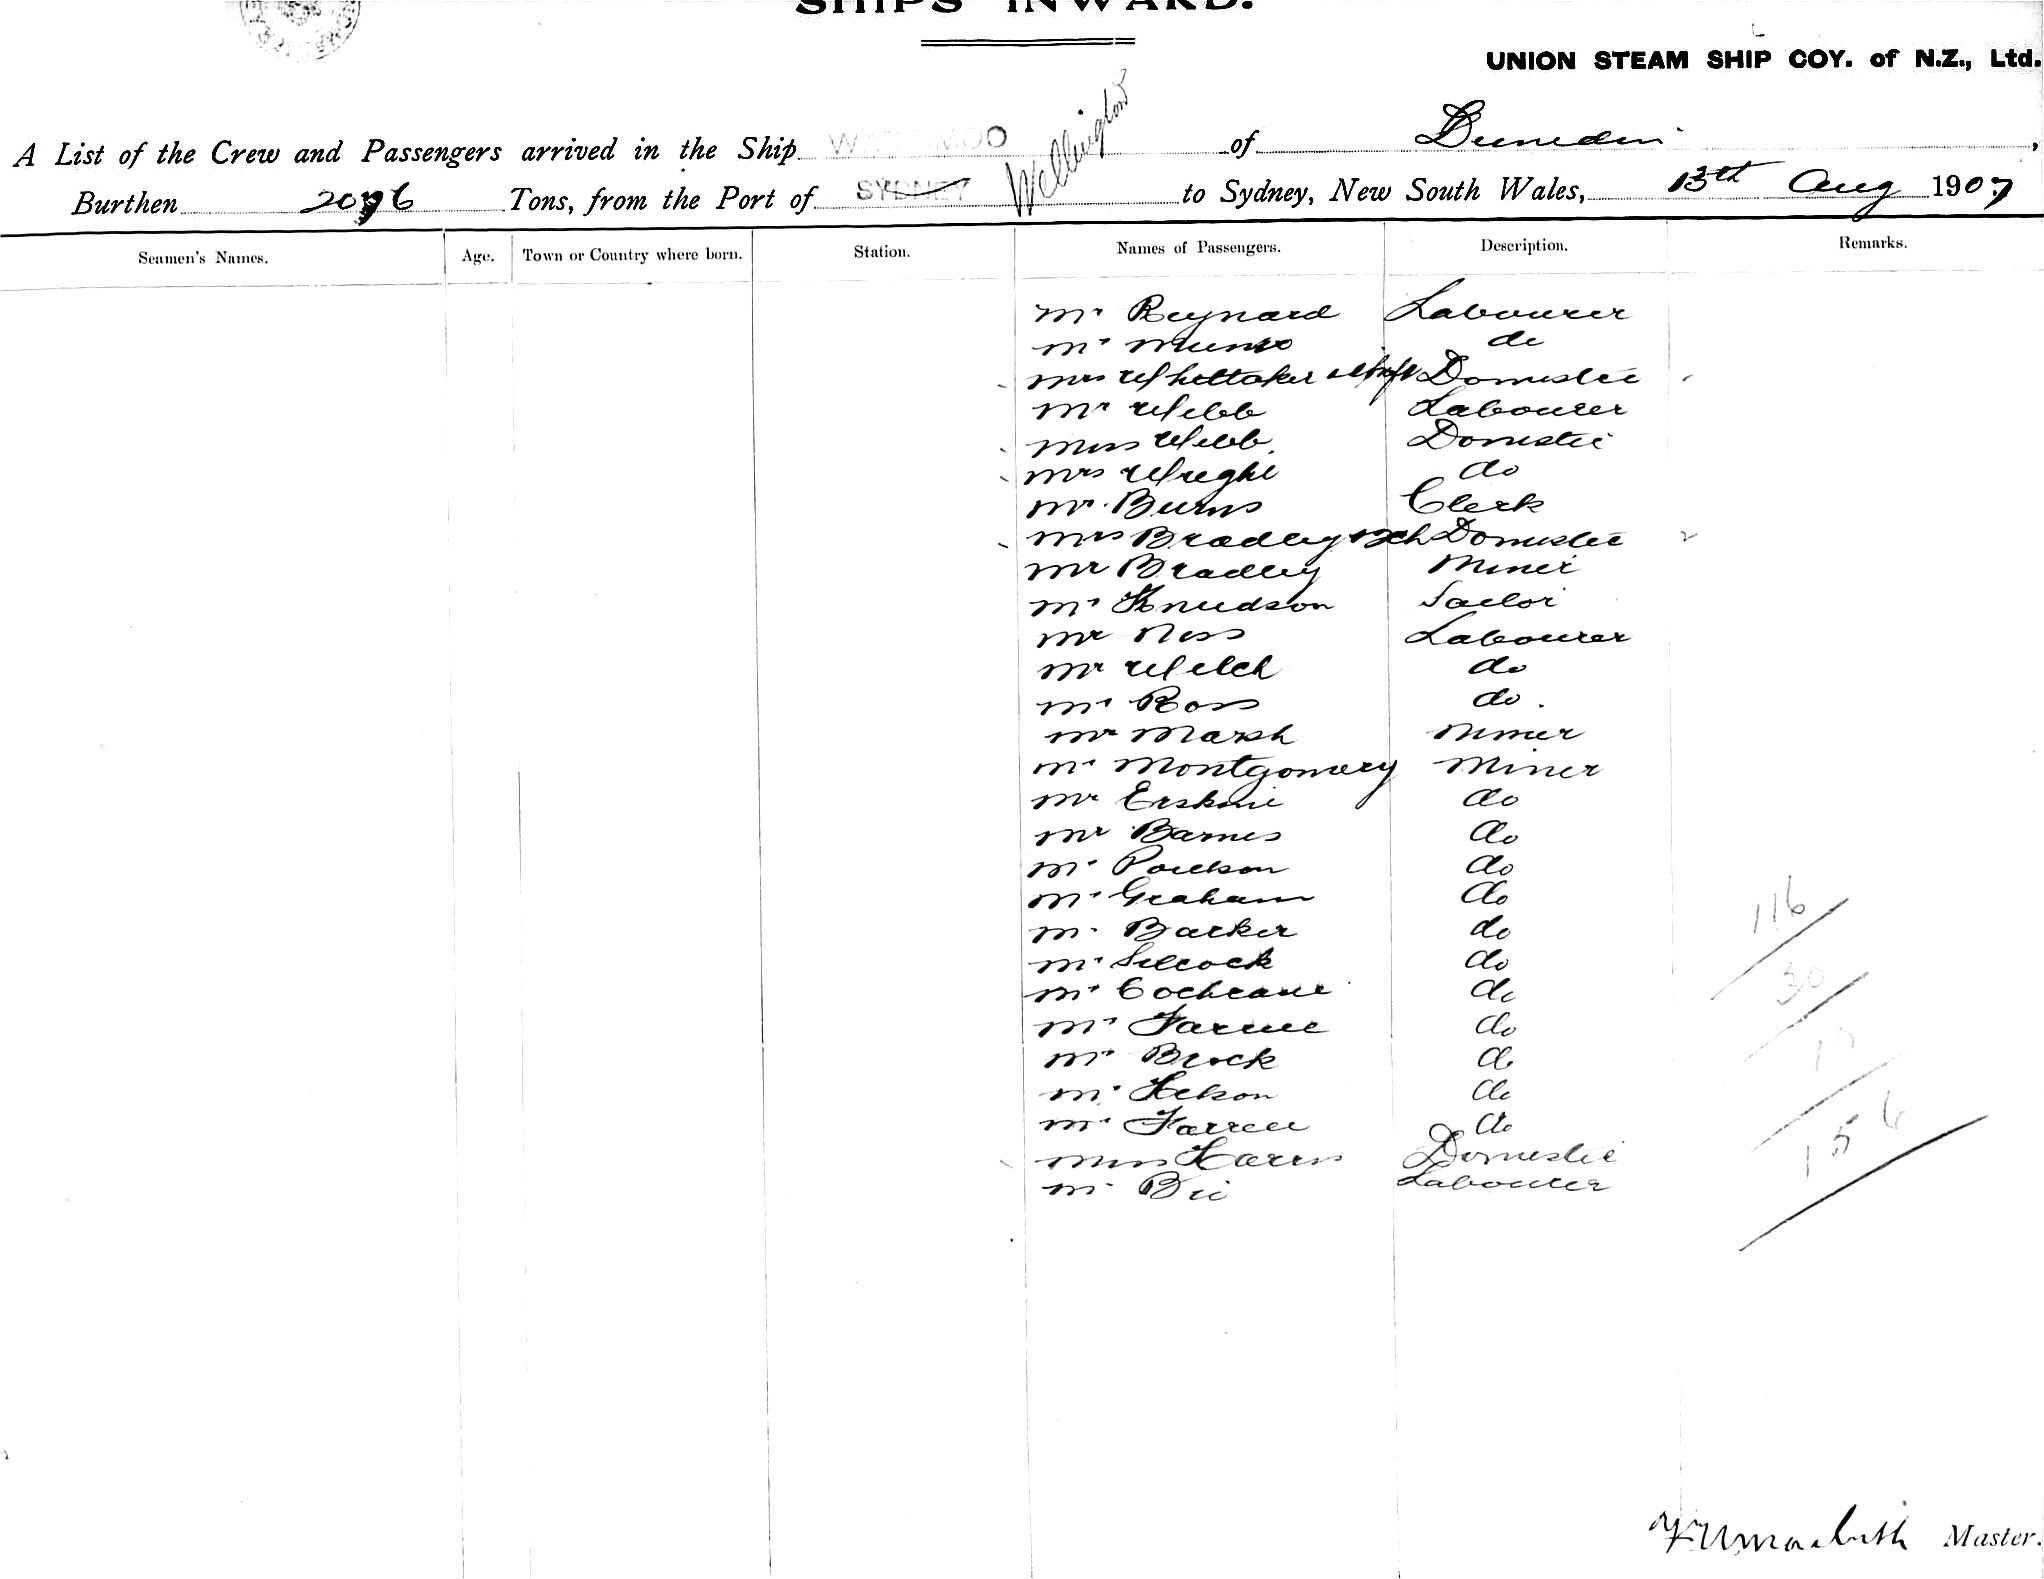 SHIPS INWARD.
UNION STEAM SHIP COY. of N.Z., Ltd.
A List of the Crew and Passengers arrived in the Ship of Dunedin,
Burthen 2076 Tons, from the Port of SYDNEY Wellington to Sydney, New South Wales, 13th Aug 1907
Seamen's Names. Age. Town or Country where born. Station. Names of Passengers. Description. Remarks.
Mr Reynard Labourer
Mr Munro do
Mrs Whittaker & Domestic
Mr Webb Labourer
Miss Webb. Domestic
Mrs Wright do
Mr Burns Clerk
Mrs Bradley Domestic
Mr Bradley Miner
Mr Knudson Sailor
Mr Ness Labourer
Mr Welch do
Mr Ross do.
Mr Marsh Miner
Mr Montgomery Miner
Mr Erskine do
Mr Barnes do
Mr Poulson do
Mr Graham do
Mr Barker do
Mr Silcock do
Mr Cochrane do
Mr do
Mr Brock do
Mr do
Mr Farrell do
Miss Harris Domestic
Mr Labourer
116
30
10
156
Master.